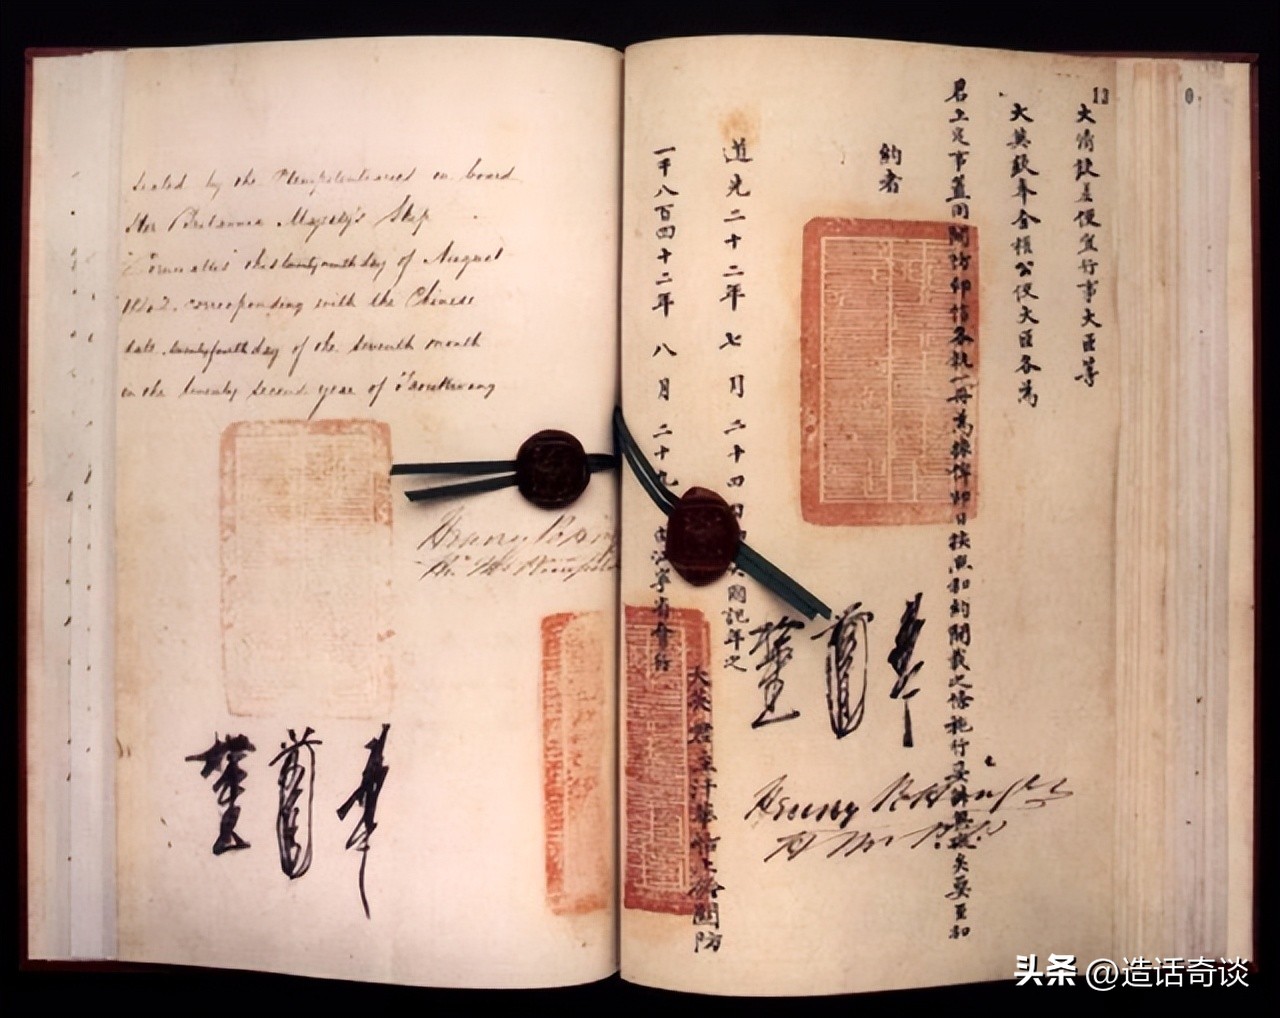 Sealed by the Plenipotentiaries on board
Her Britannic Majesty's Ship
Cornwallis this twenty ninth day of August
1842. corresponding with the Chinese
date, twenty fourth day of the seventh month
in the twenty second year of Taou Kwang
Henry
13
大清欽差便宜行事大臣等
大英欽奉全權公使大臣各為
君上定事蓋用關防印信各執一冊為據俾即日按照和約開載之條施行妥辦無礙矣要至和
約者
道光二十二年七月二十四日英國記年之
一千八百四十二年八月二十九由江寧省會行
大英君主汗華船上鈐關防
Henry Pottinger
头条 @造话奇谈